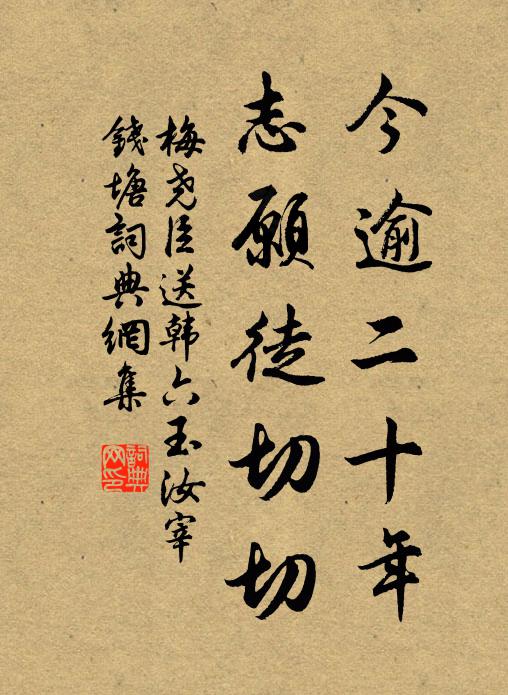 今逾二十年
志願徒切切
梅尧臣送韩六玉汝宰
錢塘詞典網集
詞典網印